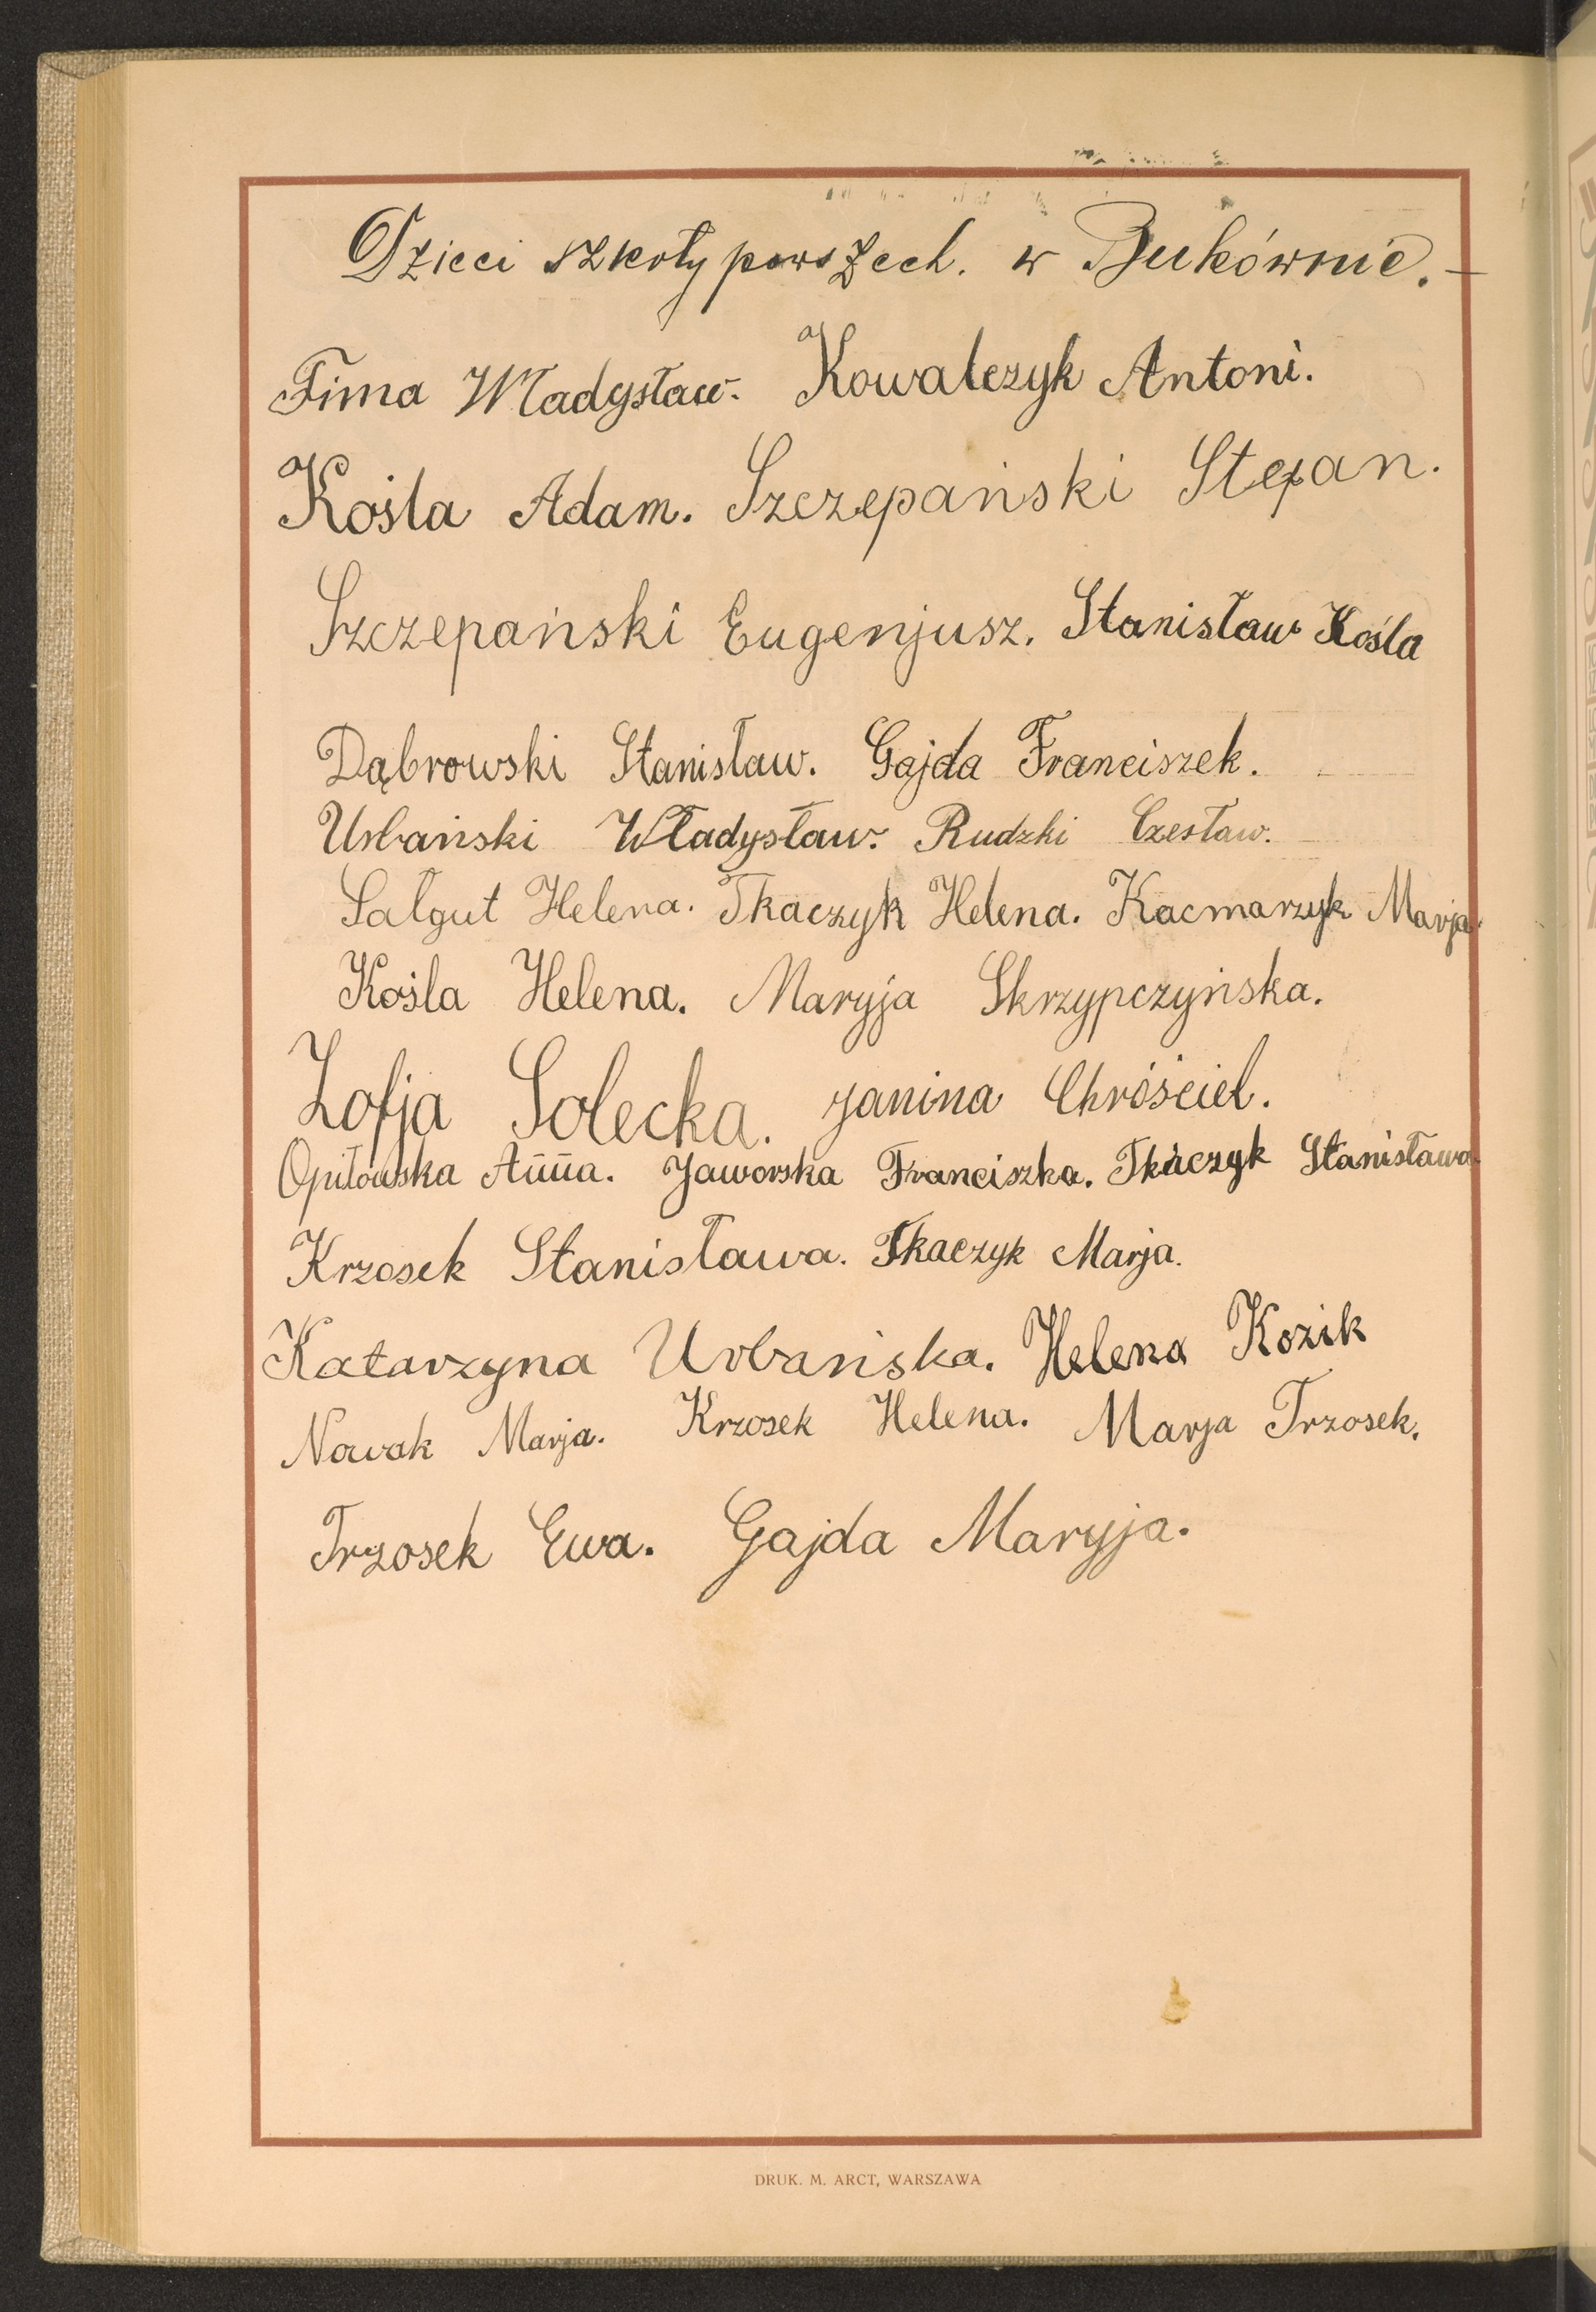 Dzieci szkoły powszech. w Bukównie. –
Fima Władysław. Kowalczyk Antoni.
Kośla Adam. Szczepański Stefan.
Szczepański Eugenjusz. Stanisław Kośla
Dąbrowski Stanisław. Gajda Franciszek.
Urbański Władysław. Rudzki Czesław.
Salgut Helena. Tkaczyk Helena. Kacmarzyk Marja.
Kośla Helena. Maryja Skrzypczyńska.
Zofja Solecka. Janina Chróściel.
Opiłowska Anna. Jaworska Franciszka. Tkaczyk Stanisława.
Krzosek Stanisława. Tkaczyk Marja.
Katarzyna Urbańska. Helena Kozik
Nowak Marja. Krzosek Helena. Marja Trzosek.
Trzosek Ewa. Gajda Maryja.
DRUK. M. ARCT, WARSZAWA